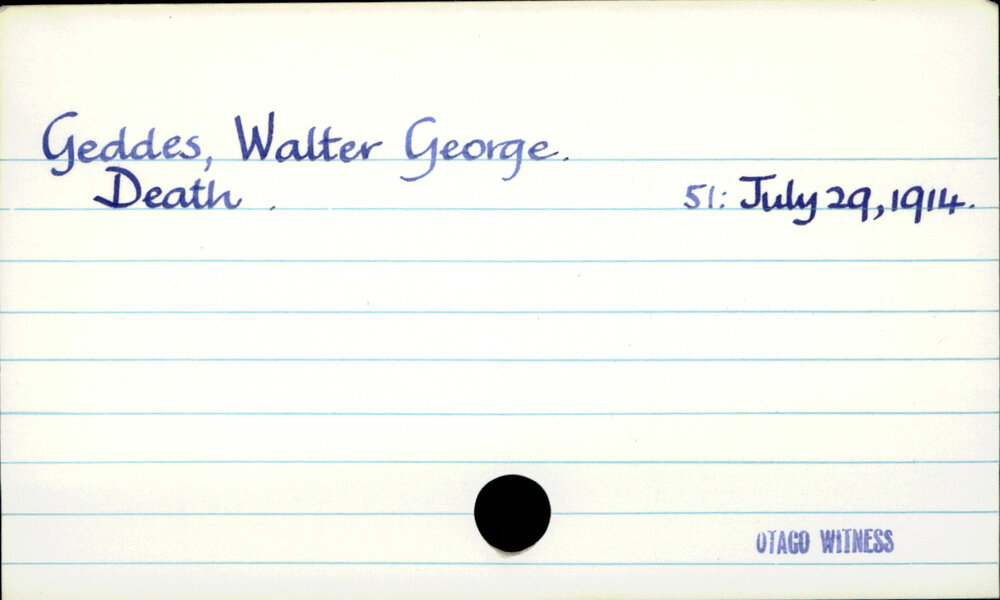 Geddes, Walter George.
Death . 51: July 29, 1914.
OTAGO WITNESS